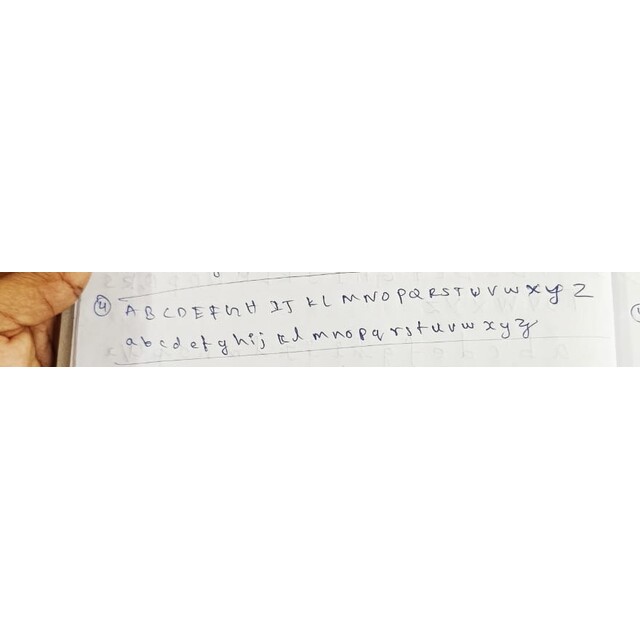 ④ A B C D E F G H I J K L M N O P Q R S T U V W X Y Z
a b c d e f g h i j k l m n o p q r s t u v w x y z